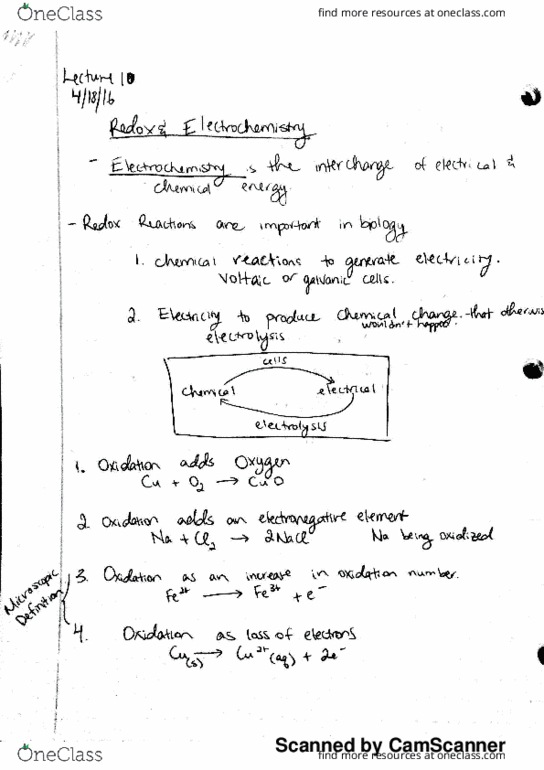 OneClass
find more resources at oneclass.com
Lecture 10
4/18/16
Redox & Electrochemistry
- Electrochemistry is the interchange of electrical &
chemical energy.
- Redox Reactions are important in biology
1. chemical reactions to generate electricity.
voltaic or galvanic cells.
2. Electricity to produce chemical change that otherwise
wouldn't happen.
electrolysis
cells
chemical electrical
electrolysis
1. Oxidation adds Oxygen
Cu + O₂ → CuO
2. Oxidation adds an electronegative element
Na + Cl₂ → 2NaCl Na being oxidized
Microscopic
Definition
3. Oxidation as an increase in oxidation number.
Fe²⁺ → Fe³⁺ + e⁻
4. Oxidation as loss of electrons
Cu(s) → Cu²⁺(aq) + 2e⁻
Scanned by CamScanner
OneClass
find more resources at oneclass.com